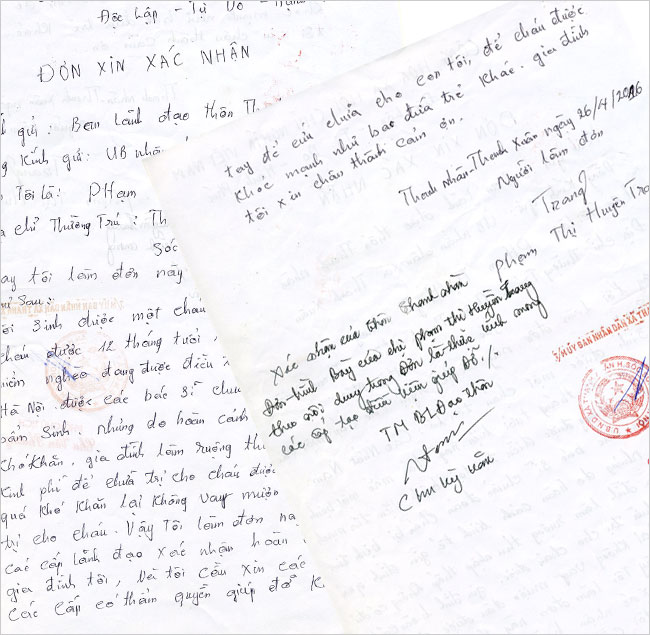 Độc Lập - Tự Do -
ĐƠN XIN XÁC NHẬN
gửi: Ban Lãnh đạo thôn Th
Kính gửi: UB nhân
Tôi là: Phạm
chỉ Thường Trú: Th
Sóc
nay tôi làm đơn này
như sau:
sinh được một cháu
cháu được 12 tháng tuổi,
hiểm nghèo đang được điều
Hà Nội được các bác sĩ chu
bẩm sinh. Nhưng do hoàn cảnh
khó khăn, gia đình làm ruộng th
kinh phí để chữa trị cho cháu được
quá khó khăn lại không vay mượn
trị cho cháu. Vậy Tôi làm đơn nà
các cấp lãnh đạo xác nhận hoàn
gia đình tôi, Và tôi cầu xin các
các cấp có thẩm quyền giúp đỡ K
tay để cứu chữa cho con tôi, để cháu được
khỏe mạnh như bao đứa trẻ khác. gia đình
tôi xin chân thành cảm ơn.
Thanh nhàn-Thanh Xuân ngày 26/4/2016
Người làm đơn
Trang
Phạm Thị Huyền Tra
Xác nhận của thôn Thanh nhàn
Đơn trình Bày của chị phạm thị Huyền Trang
theo nội dung trong Đơn là thực kính mong
các cấp tạo điều kiện giúp đỡ./.
TM BL Đạo thôn
Chu Kỳ Năm
T/M ỦY BAN NHÂN DÂN XÃ THA